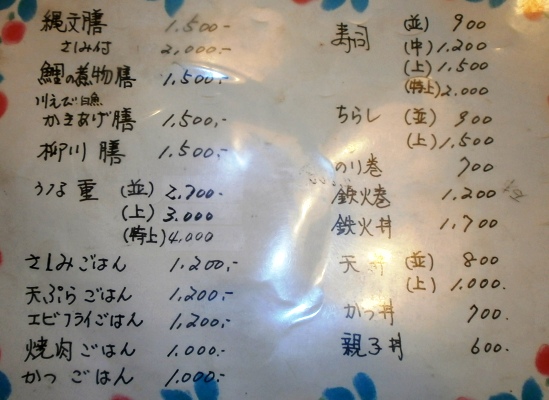 縄文膳 1,500.-
さしみ付 2,000.-
鯉の煮物膳 1,500.-
川えび白魚
かきあげ膳 1,500.-
柳川膳 1,500.-
うな重 (並) 2,700.-
(上) 3.000
(特上) 4,000
さしみごはん 1,200.-
天ぷらごはん 1,200.-
エビフライごはん 1,200.-
焼肉ごはん 1.000.-
かつごはん 1.000.-
寿司 (並) 900
(中) 1.200
(上) 1,500
(特上) 2.000
ちらし (並) 900
(上) 1,500
のり巻 700
鉄火巻 1,200
鉄火丼 1,700
天 (並) 800
(上) 1,000.
かつ丼 700.
親子丼 600.